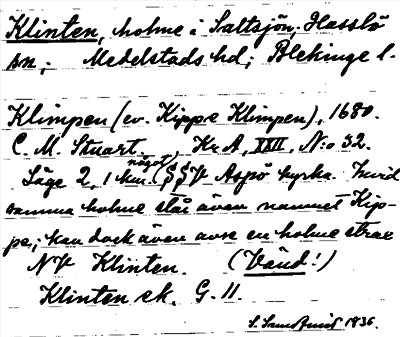 Klinten, holme i Saltsjön; Hasslö
sn; Medelstads hd; Blekinge l.
Klimpen (ev. Kippe Klimpen), 1680.
C. M. Stuart. Kr A, XXII, No 32.
Läge 2,1 km. (något) SSV Aspö kyrka. Invid
samma holme står även namnet Kip-
pe; kan dock även avse en holme strax
NV Klinten. (Vänd!)
Klinten ek. G. 11.
1936.